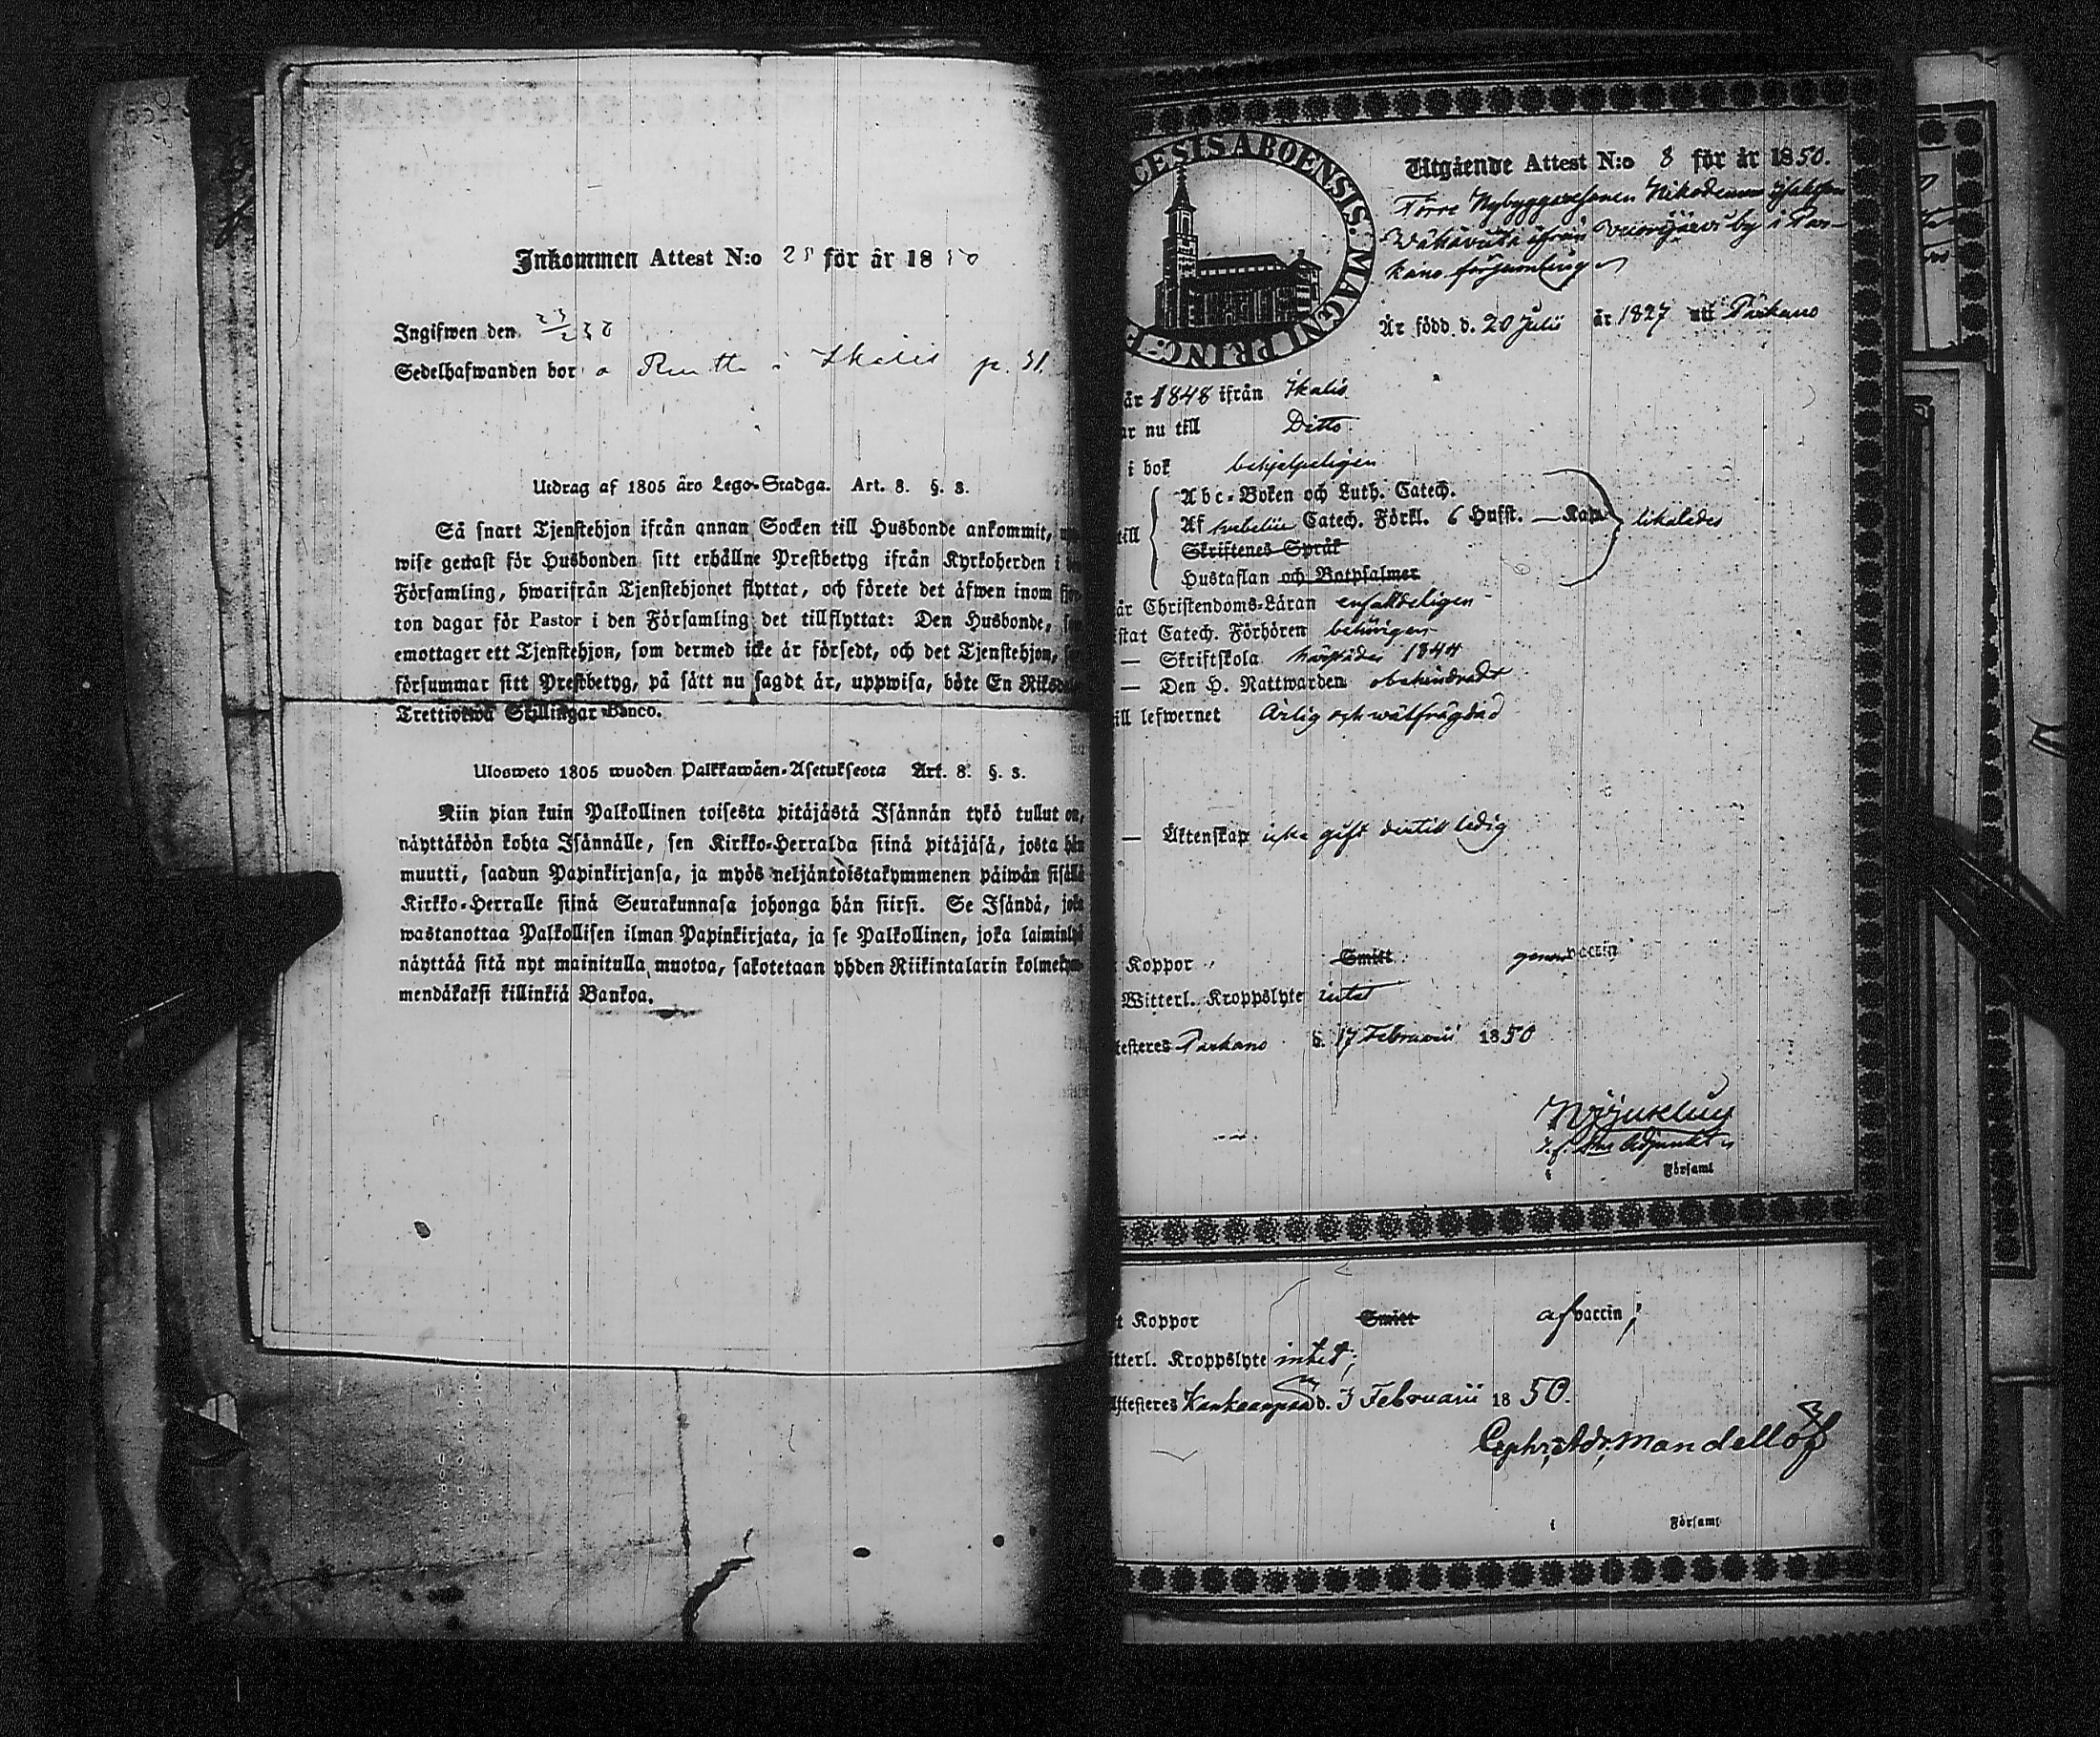 Inkommen Attest N:o 25 för år 1850
Ingifwen den 23/2 50
Sedelhafwanden bor i Ikalis p. 31
Utdrag af 1805 års Lego-Stadga. Art. 8. §. 3.
Så snart Tjenstehjon ifrån annan Socken till Husbonde ankommit,
wise genast för Husbonden sitt erhållne Prestbetyg ifrån Kyrkoherden i
Församling, hwarifrån Tjenstehjonet flyttat, och förete det äfwen inom
ton dagar för Pastor i den Församling det tillflyttat: Den Husbonde,
emottager ett Tjenstehjon, som dermed icke är försedt, och det Tjenstehjon,
försummar sitt Prestbetyg, på sätt nu sagdt är, uppwisa, böte En Riksd
Trettiotwå Skillingar Banco.
Ulosweto 1805 wuoden Palkkawäen-Asetuksesta Art. 8. §. 3.
Niin pian kuin Palkollinen toisesta pitäjästä Isännän tykö tullut on,
näyttäköön kohta Isännälle, sen Kirkko-Herralda siinä pitäjäsä, josta hän
muutti, saadun Papinkirjansa, ja myös neljäntoistakymmenen päiwän sisällä
Kirkko-Herralle siinä Seurakunnasa johonga hän siirsi. Se Isändä, joka
wastanottaa Palkollisen ilman Papinkirjata, ja se Palkollinen, joka laiminlyö
näyttää sitä nyt mainitulla muotoa, sakotetaan yhden Riikintalarin kolmekym-
mendäkaksi killinkiä Bankoa.
CESIS ABOENSIS. MAGNI PRINC: F
Utgående Attest N:o 8 för år 1850.
Förre Nybyggaresonen Nikodemus Isaksson
ifrån Vuorijärvi by i Par-
kano församling
Är född d. 20 Julii år 1827 uti Parkano
år 1848 ifrån Ikalis
ar nu till Ditto
i bok behjelpeligen
till
Abc-Boken och Luth. Catech.
Af Catech. Förkl. 6 Hufst. — Kap. likaledes
Skriftenes Språk
Hustaflan och Botpsalmer
år Christendoms-Läran enfaldeligen
istat Catech. Förhören behörigen
— Skriftskola 1844
— Den H. Nattwarden obehindradt
ill lefwernet Ärlig och wälfrägdad
— Äktenskap icke gift dertill ledig
Koppor Smitt genom vaccin
Witterl. Kroppslyte intet
testeres Parkano d. 17 Februarii 1850
Adjunkt
i Församl
t Koppor Smitt af vaccin;
itterl. Kroppslyte intet;
ttesteres Kankaanpää d. 3 Februarii 1850.
Mandellöf
i Församl